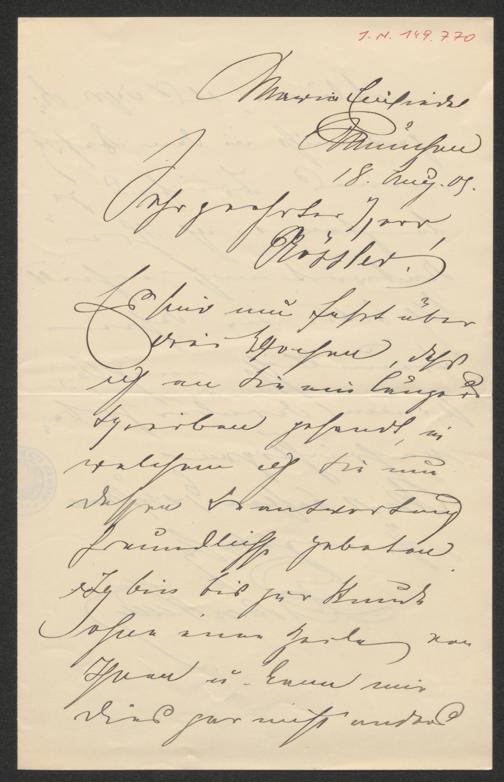 J.N. 149.770
Maria
München
18. Aug. 09.
Sehr geehrter Herr
Rössler.
Es sind nun fast über
drei Wochen, daß
ich an Sie ein längeres
Schreiben gesandt, in
welchem ich Sie um
dessen Beantwortung
freundlichst gebeten.
Ich bin bis zur Stunde
ohne eine Zeile von
Ihnen u. kann mir
dies gar nicht anders